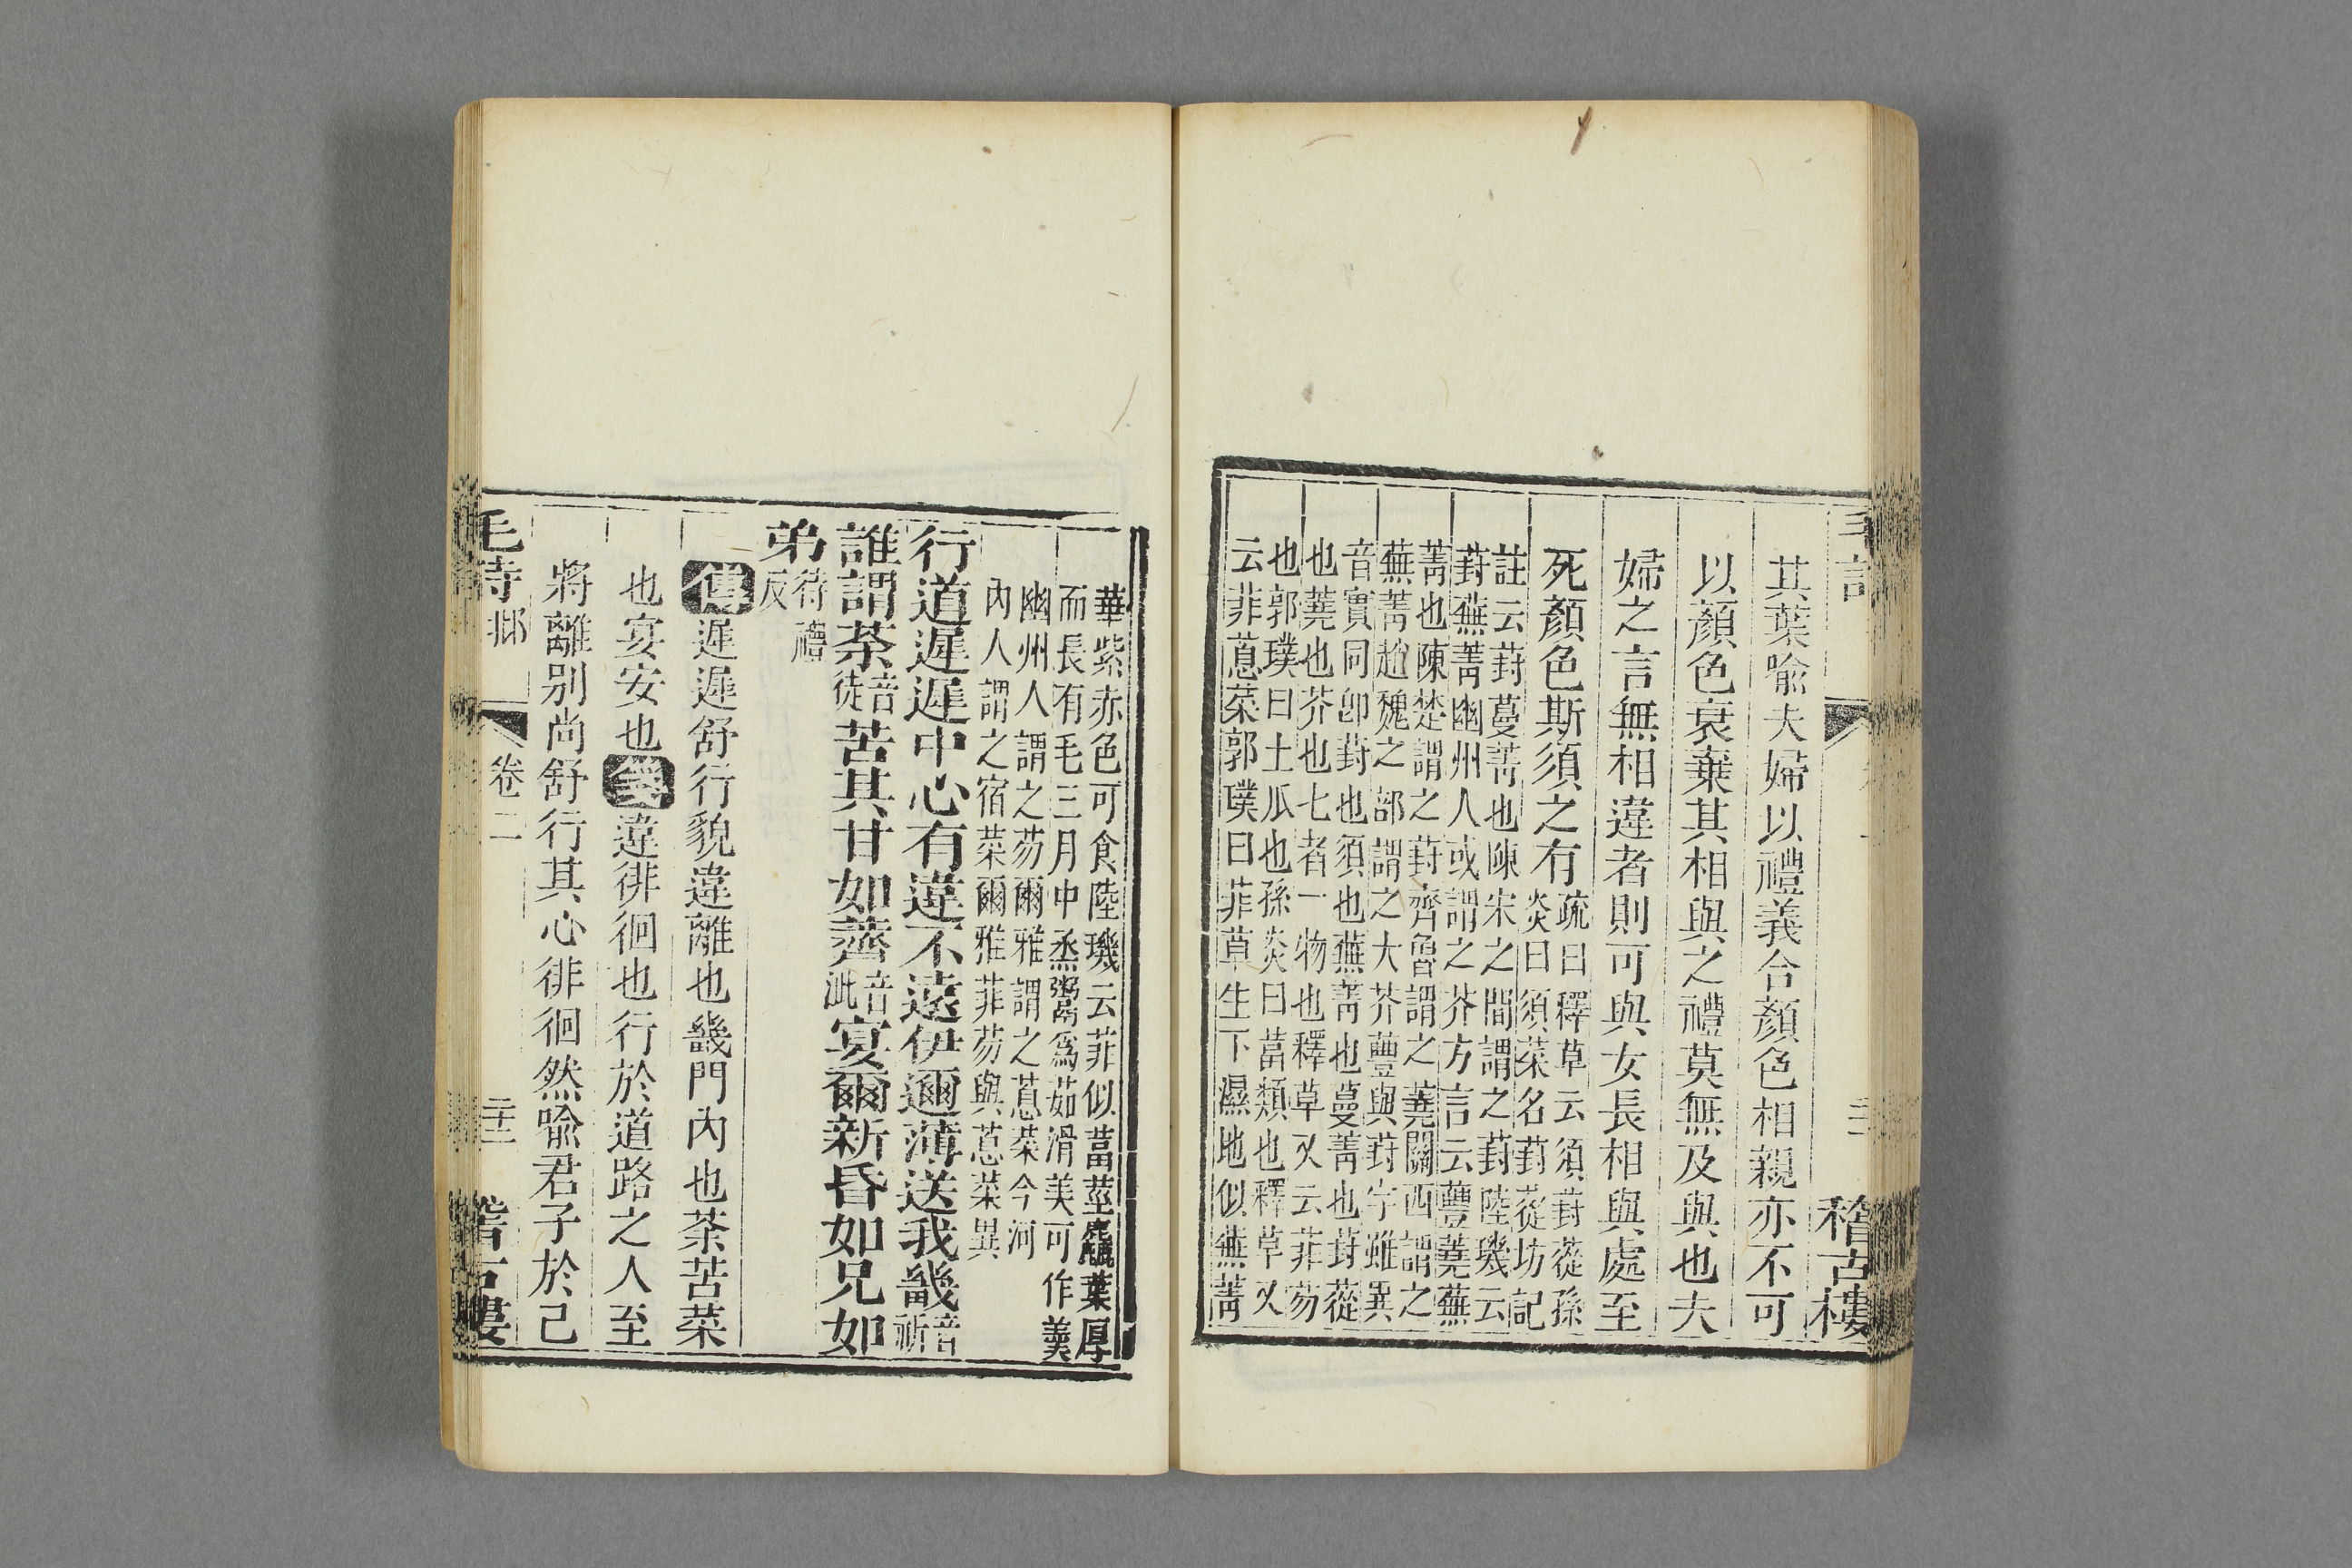 其葉喻夫婦以禮義合顏色相親亦不可
以顏色衰棄其相與之禮莫無及與也夫
婦之言無相違者則可與女長相與處至
死顏色斯須之有
疏曰釋草云須葑蓯孫
炎曰須菜名葑蓯坊記
註云葑蔓菁也陳宋之間謂之葑陸璣云
葑蕪菁幽州人或謂之芥方言云蘴蕘蕪
菁也陳楚謂之葑齊魯謂之蕘關西謂之
蕪菁趙魏之部謂之大芥蘴與葑字雖異
音實同卽葑也須也蕪菁也蔓菁也葑蓯
也蕘也芥也七者一物也釋草又云菲芴
也郭璞曰土瓜也孫炎曰葍類也釋草又
云菲蒠菜郭璞曰菲草生下濕地似蕪菁
稽古樓
華紫赤色可食陸璣云菲似葍莖麤葉厚
而長有毛三月中烝鬻爲茹滑美可作羹
幽州人謂之芴爾雅謂之蒠菜今河
內人謂之宿菜爾雅菲芴與蒠菜異
行道遲遲中心有違不遠伊邇薄送我畿音祈
誰謂荼音徒苦其甘如薺音泚宴爾新昏如兄如
弟待禮反
傳遲遲舒行貌違離也畿門內也荼苦菜
也宴安也箋違徘徊也行於道路之人至
將離別尚舒行其心徘徊然喻君子於己
毛詩 邶 卷二 二十二 稽古樓